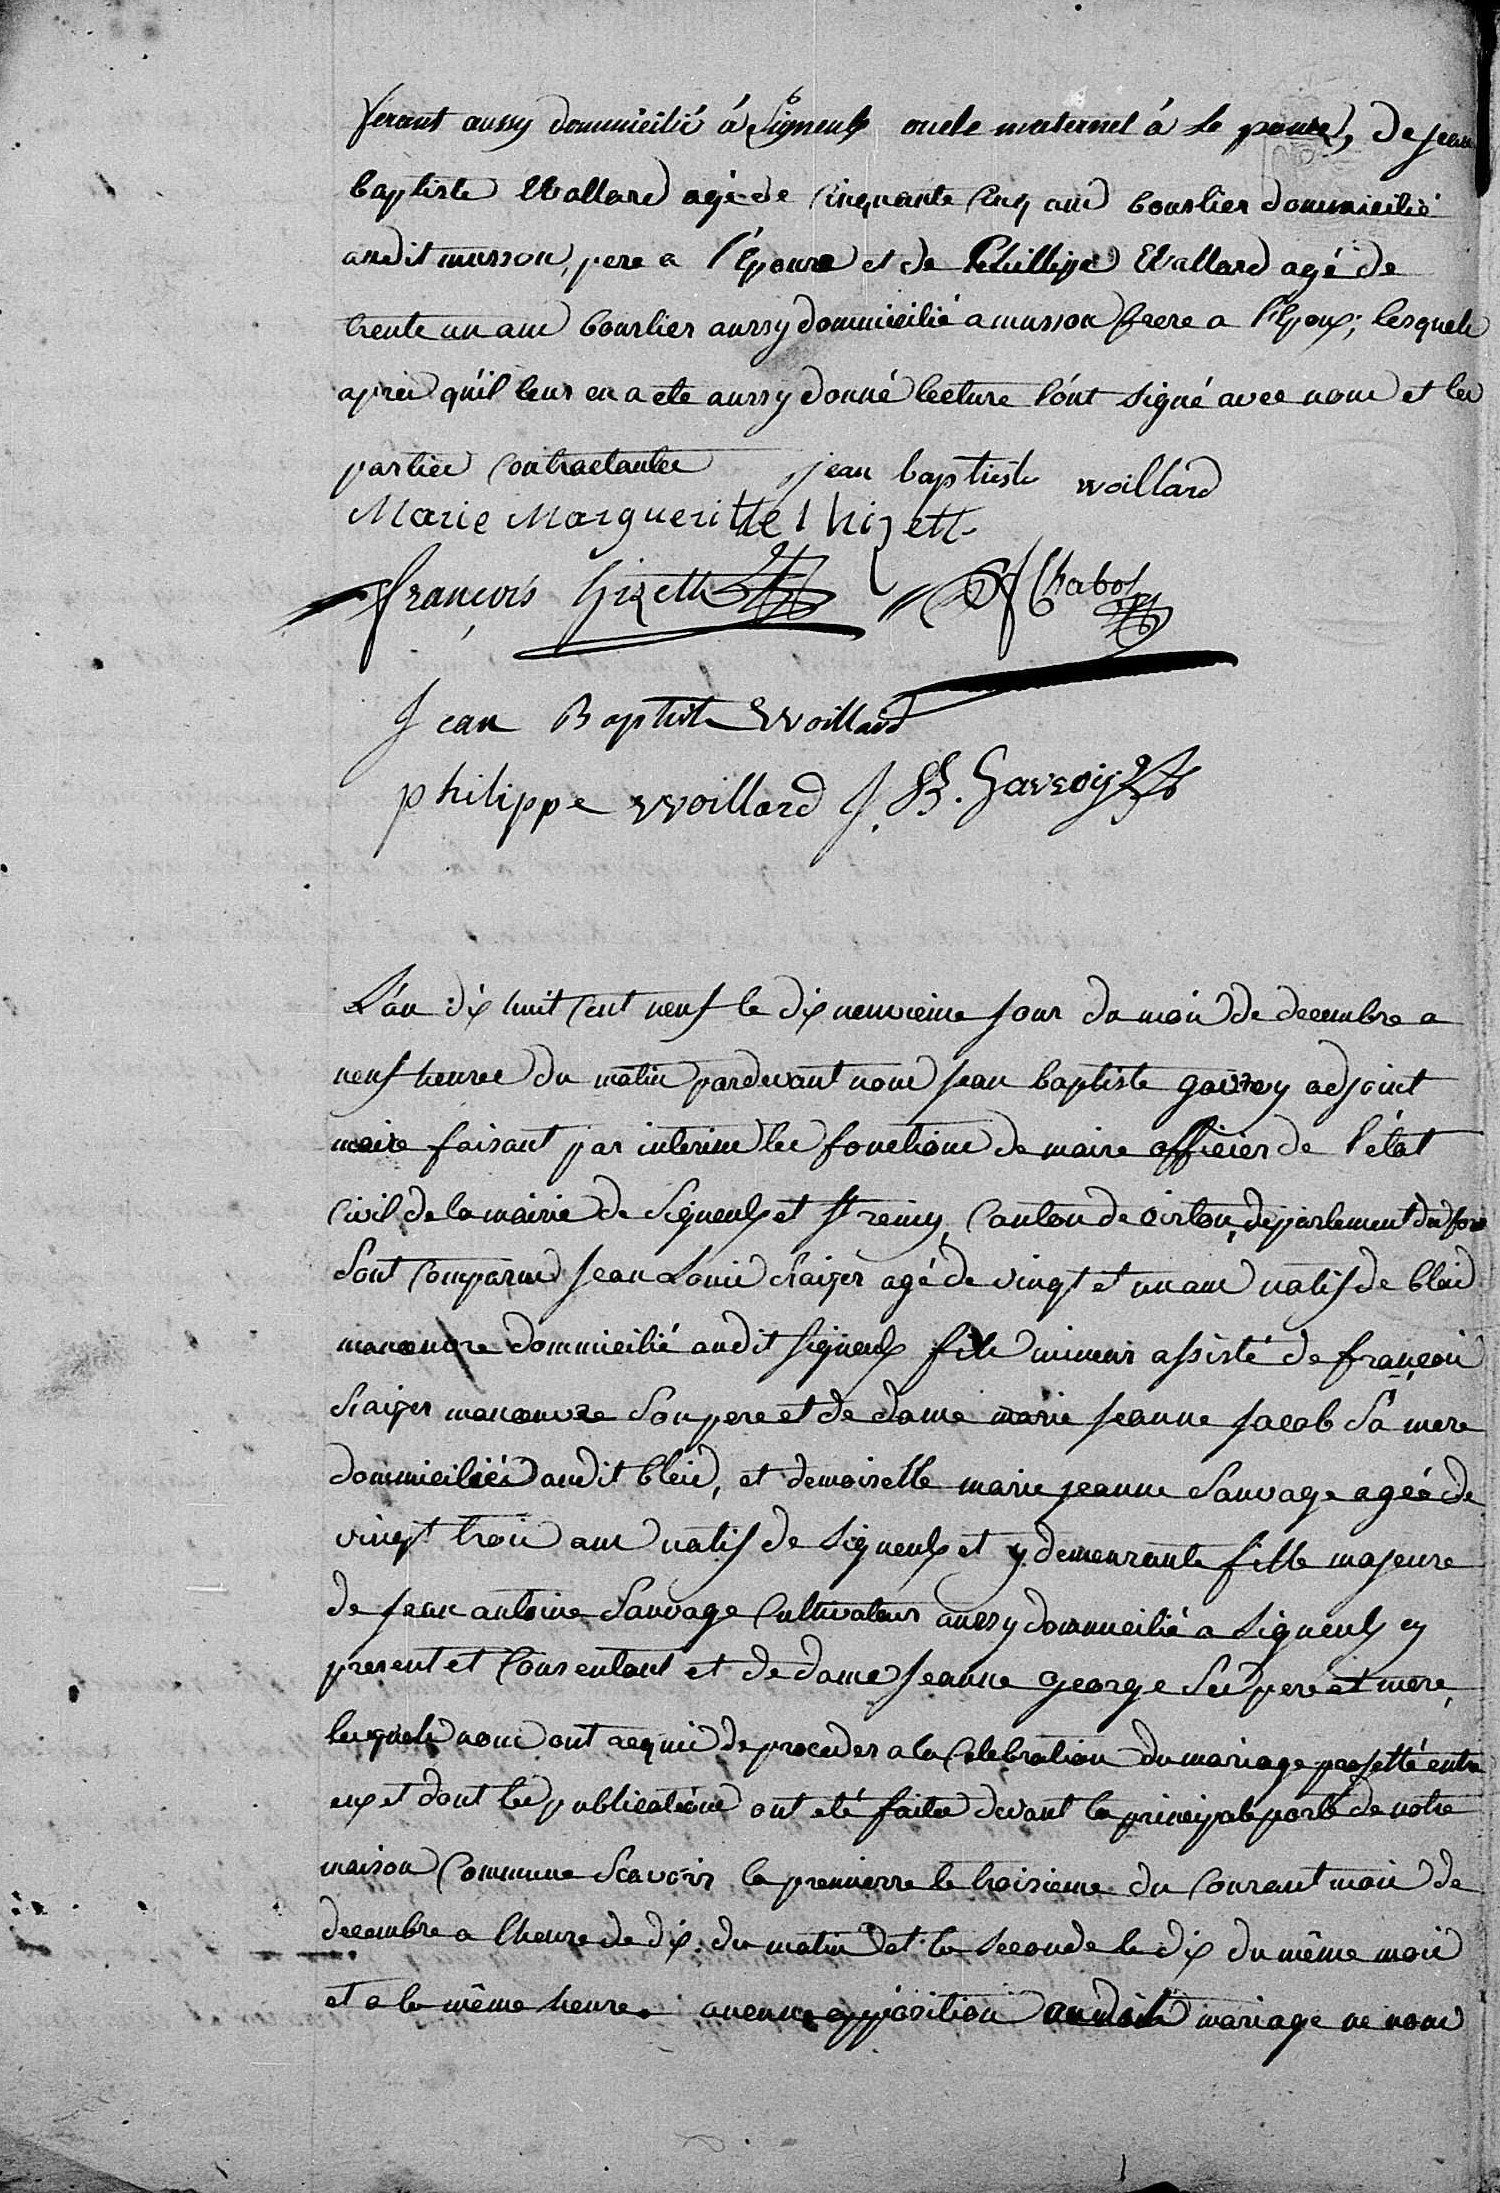 ferant aussy domicilié á Signeulx oncle maternel á de Jean
baptiste Wallard agé de cinquante cinq ans bourlier domicilié
audit musson, pere a l'Epoux et de Phillippe Wallard agé de
trente un ans bourlier aussy domicilié a musson frere a l'Epoux; lesquels
apres qu'il leur en a ete aussy donné lecture l'ont signé avec nous et les
parties contractantes jean baptiste woillard
Marie Margueritte hizette
françois hizette Chabot
Jean Baptiste Woillard
philippe woillard J. B. Gavroy
L'an dix huit cent neuf le dix neuvieme jour du mois de decembre a
neuf heures du matin pardevant nous Jean baptiste gavroy adjoint
maire faisant par interim les fonctions de maire officier de l'état
civil de la mairie de Signeulx et St remy, Canton de virton, departement des for
Sont comparus Jean Louis agé de vingt et un ans natif de bleid
manoeuvre domicilié audit Signeulx fils mineur assisté de françois
manoeuvre Son pere et de dame marie Jeanne Jacob Sa mere
domiciliés audit bleid, et demoiselle marie jeanne Sauvage agée de
vingt trois ans natif de Signeulx et y demeurante fille majeure
de Jean antoine Sauvage Cultivateur aussy domicilié a Signeulx cy
present et Consentant et de dame Jeanne george Ses pere et mere,
lesquels nous ont requis de proceder a la Celebration du mariage projetté entre
eux et dont les publications ont eté faites devant la principale porte de notre
maison Commune Scavoir la premierre le troisieme du Courant mois de
decembre a lheure de dix du matin et la seconde le dix du même mois
et a la même heure. aucune opposition audit mariage ne nous